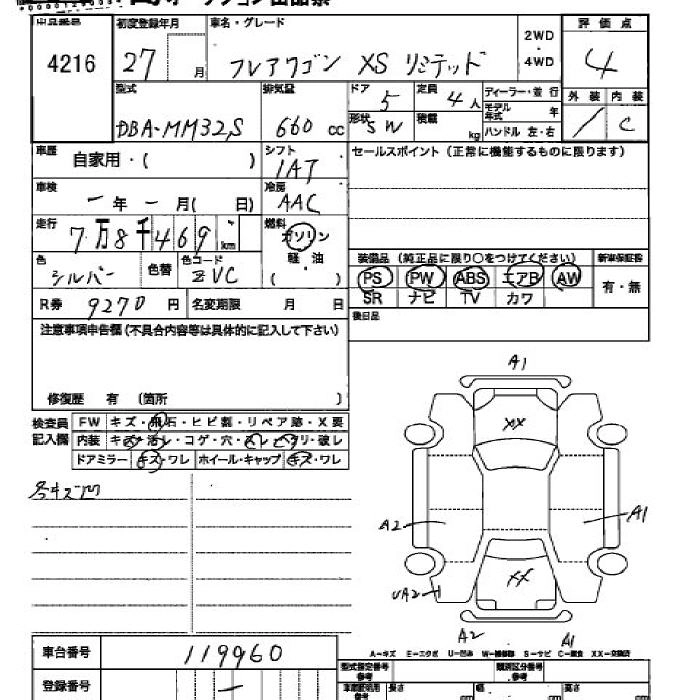 出品番号 初度登録年月 車名・グレード 2WD・4WD 評価点
4216 27 月 フレアワゴン XS リミテッド 4
型式 排気量 ドア 5 定員 4人 ディーラー・並行 外装 内装
DBA-MM32S 660 cc 形状 SW 積載 kg モデル年式 年 ハンドル 左・右 / C
車歴 自家用・( ) シフト セールスポイント(正常に機能するものに限ります)
1AT
車検 ー年ー月( 日) 冷房 AAC
走行 7万8千469km 燃料 ガソリン
色 シルバー 色替 色コード ZVC 軽・油 ( )
装備品(純正品に限り○をつけてください) 新車保証書
PS PW ABS エアB AW 有・無
SR ナビ TV カワ
R券 9270円 名変期限 月 日
後日品
注意事項申告欄(不具合内容等は具体的に記入して下さい)
修復歴 有 (箇所 )
検査員記入欄 FW キズ・飛石・ヒビ割・リペア跡・X要
内装 キズ・汚レ・コゲ・穴・スレ・ヘタリ・破レ
ドアミラー キズ・ワレ ホイール・キャップ キズ・ワレ
各キズ凹
A1
XX
A2 A1
XX
UA2
A2 A1
A-キズ E-エクボ U-凹み W-補修跡 S-サビ C-腐食 XX-交換済
車台番号 119960 型式指定番号 参考 類別区分番号 参考
登録番号 ー 長さ cm 幅 cm 高さ cm